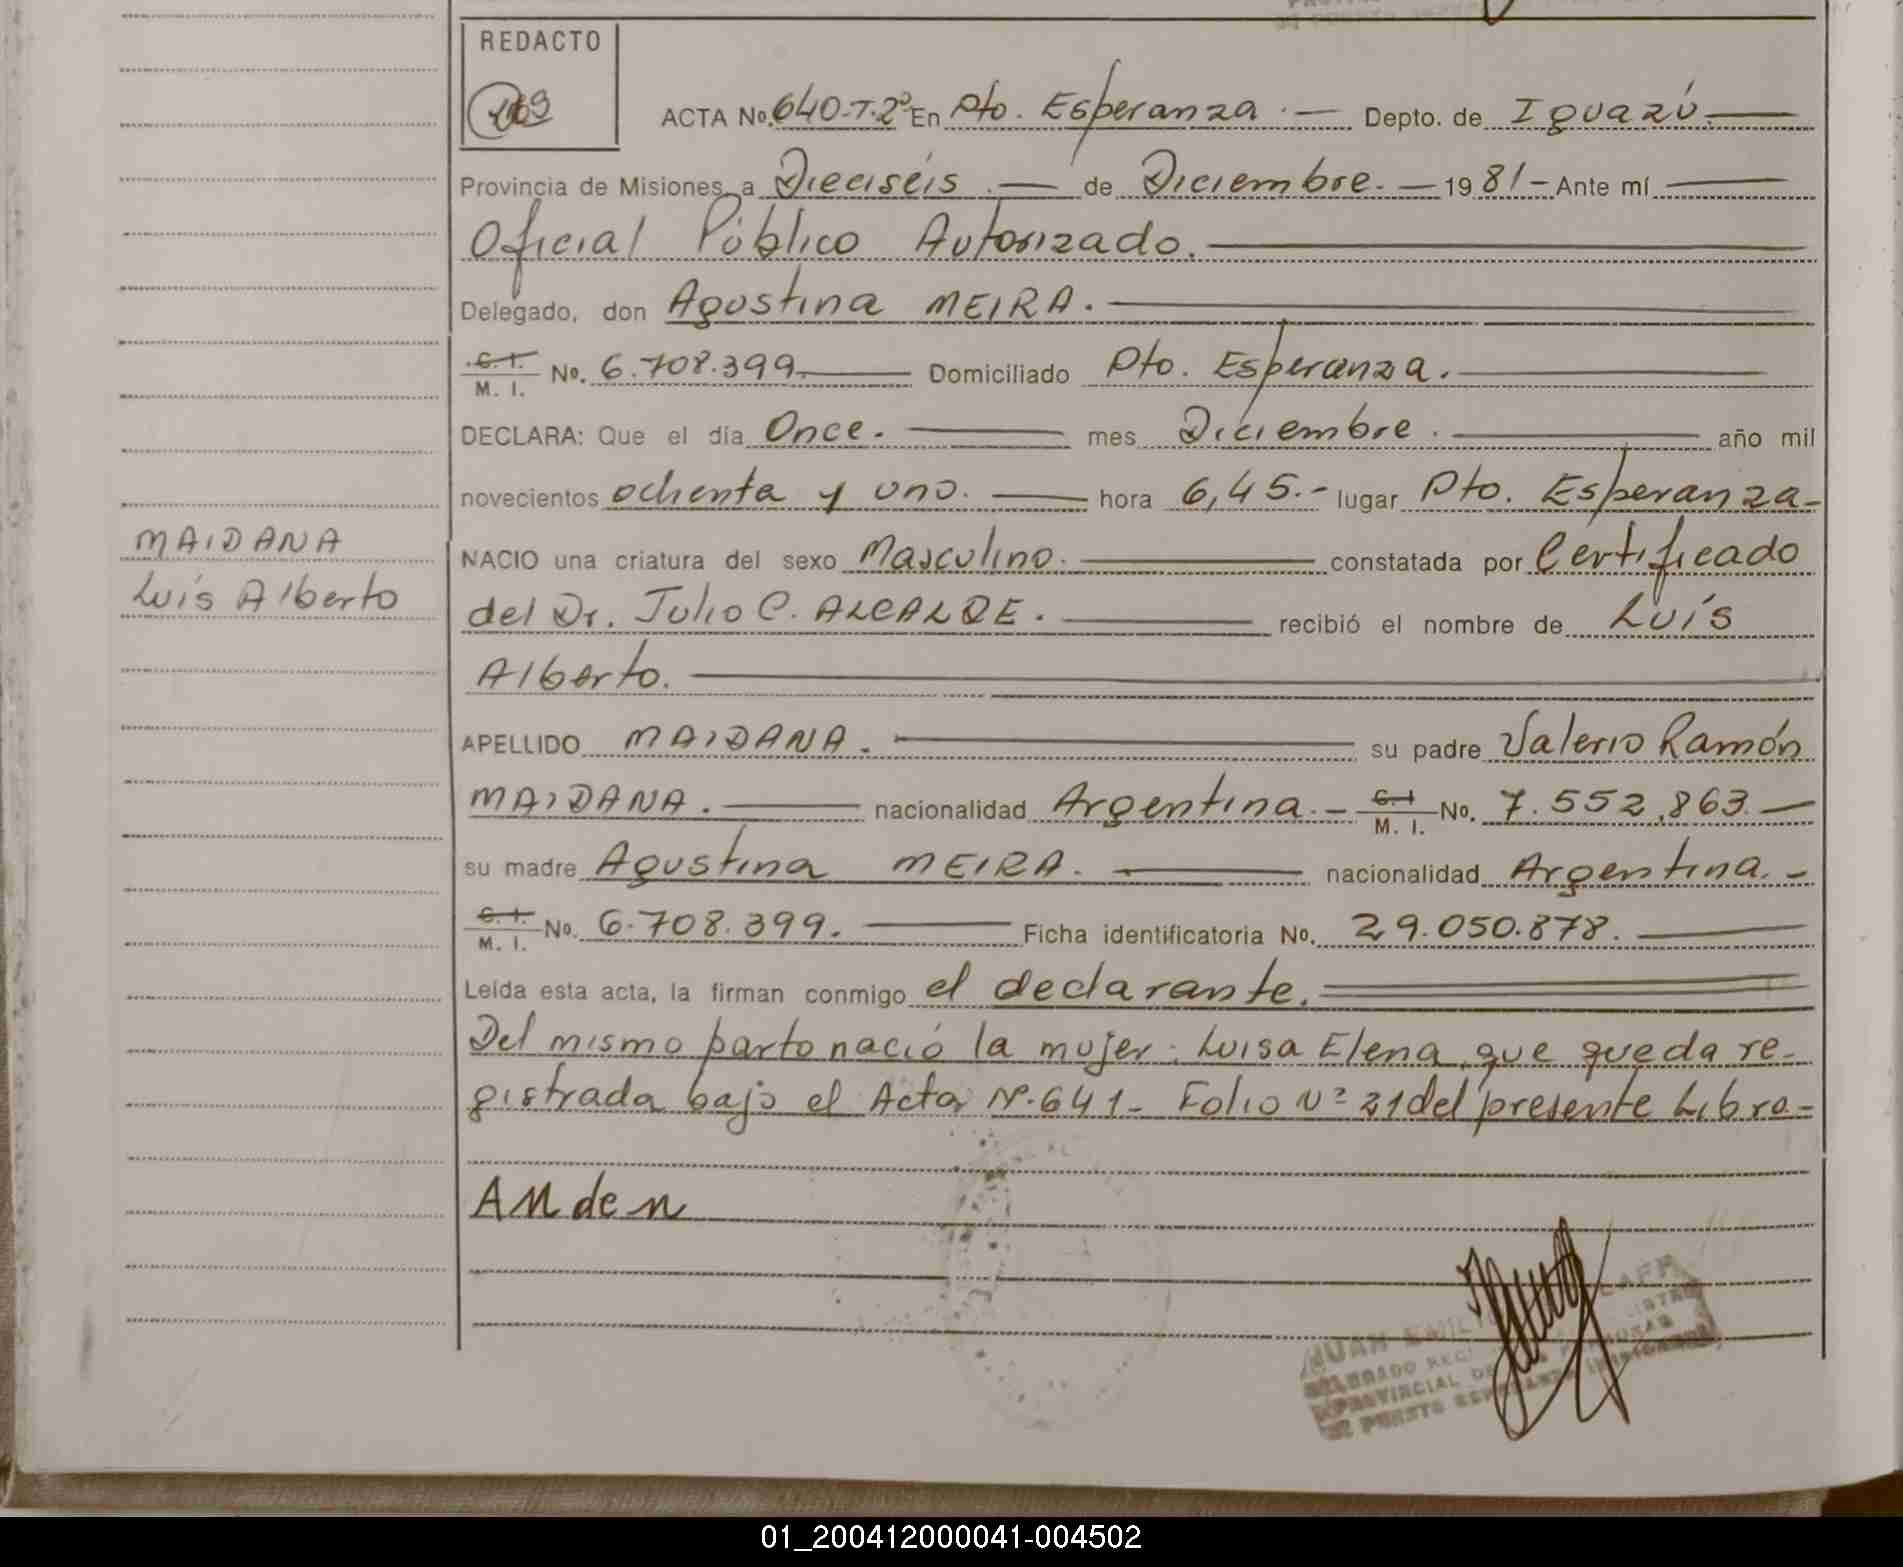 REDACTO
ACTA No. 640-T.2º En Pto. Esperanza.— Depto. de Iguazú.—
Provincia de Misiones, a Dieciséis.— de Diciembre.— 1981- Ante mí —
Oficial Público Autorizado.—
Delegado, don Agustina MEIRA.—
C. I. / M. I. No. 6.708.399.— Domiciliado Pto. Esperanza.—
DECLARA: Que el día Once.— mes Diciembre.— año mil
novecientos ochenta y uno.— hora 6,45.- lugar Pto. Esperanza-
MAIDANA
NACIO una criatura del sexo Masculino.— constatada por Certificado
Luís Alberto
del Dr. Julio C. ALCALDE.— recibió el nombre de Luís
Alberto.—
APELLIDO MAIDANA.— su padre Valerio Ramón
MAIDANA.— nacionalidad Argentina.- C. I / M. I. No. 7.552.863.—
su madre Agustina MEIRA.— nacionalidad Argentina.-
C. I. / M. I. No. 6.708.399.— Ficha identificatoria No. 29.050.878.—
Leída esta acta, la firman conmigo el declarante.
Del mismo parto nació la mujer: Luisa Elena, que queda re-
gistrada bajo el Acta Nº.641- Folio Nº 21 del presente Libro-
JUAN EMILI
PROVINCIAL DE
DE PUERTO ESPERANZA
01_200412000041-004502